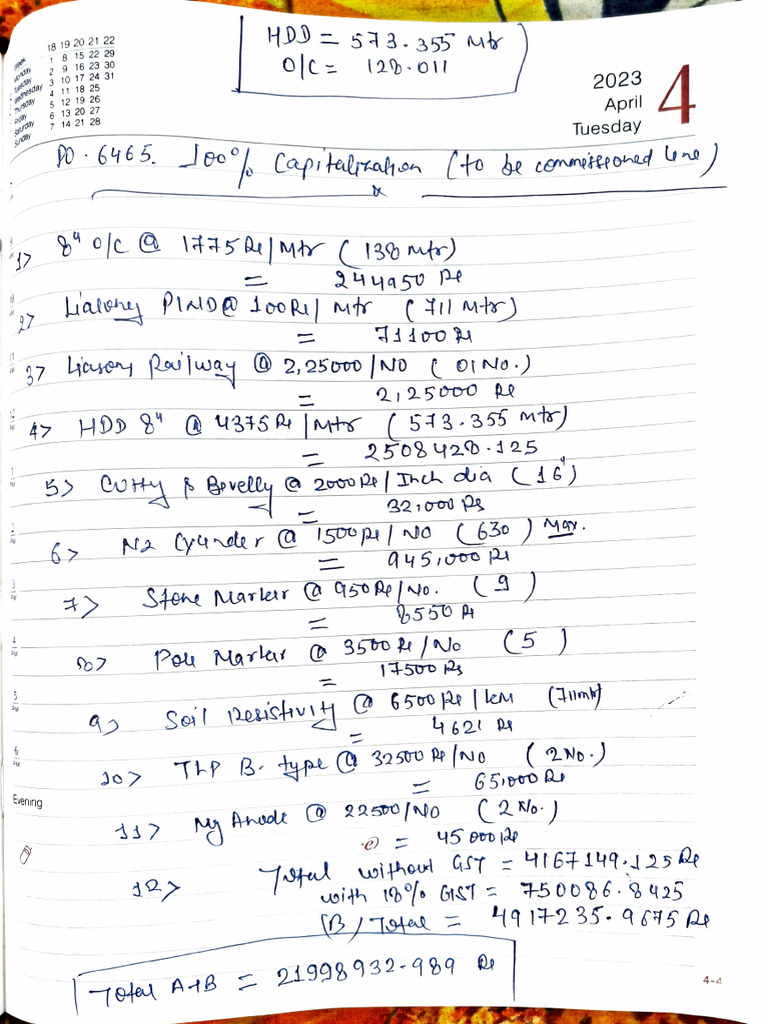 HDD = 573.355 Mtr
O/C = 128.011
18 19 20 21 22
Week
Monday 1 8 15 22 29
Tuesday 2 9 16 23 30
Wednesday 3 10 17 24 31
Thursday 4 11 18 25
Friday 5 12 19 26
Saturday 6 13 20 27
Sunday 7 14 21 28
2023
April
Tuesday
4
PO. 6465. 100% Capitalization (to be commissioned line)
1> 8" O/C @ 1775 Rs/Mtr (138 Mtr)
= 244950 Rs
2> Liasoning PWD @ 100Rs/ Mtr (711 Mtr)
= 71100 Rs
3> Liasoning Railway @ 2,25000/NO (01 No.)
= 2,25000 Rs
4> HDD 8" @ 4375 Rs/Mtr (573.355 Mtr)
= 2508428.125
5> Cutting & Bevelling @ 2000 Rs/Inch dia (16")
= 32,000 Rs
6> N2 Cylinder @ 1500 Rs/NO (630) Max.
= 945,000 Rs
7> Stone Marker @ 950 Rs/No. (9)
= 8550 Rs
8> Pole Marker @ 3500 Rs/No (5)
= 17500 Rs
9> Soil Resistivity @ 6500 Rs/km (711mtr)
= 4621 Rs
10> TLP B. type @ 32500 Rs/No (2 No.)
= 65,000 Rs
Evening
11> Mg Anode @ 22500/NO (2 No.)
= 45000 Rs
12> Total without GST = 4167149.125 Rs
with 18% GST = 750086.8425
(B) Total = 4917235.9675 Rs
Total A+B = 21998932.989 Rs